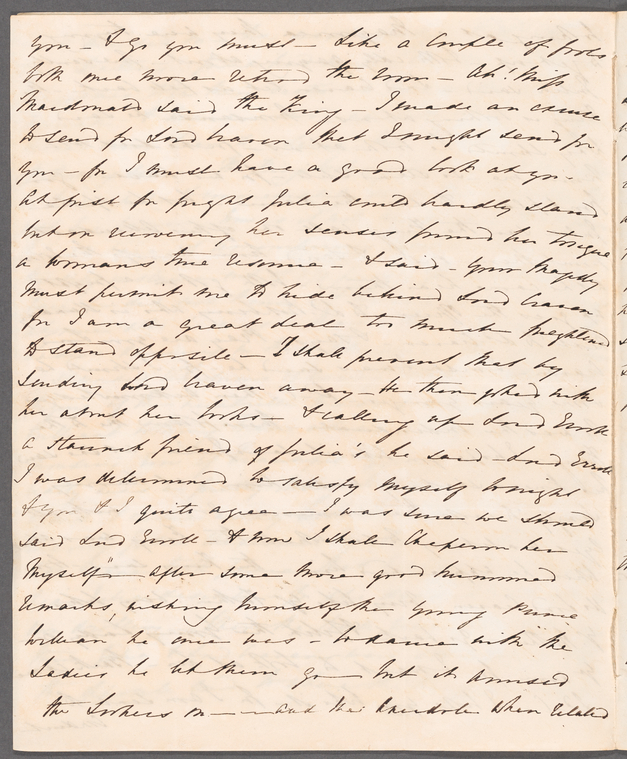 you - & go you must - Like a couple of fools
both once more retired the room - Ah! Miss
Macdonald said the King - I made an excuse
to send for Lord Craven that I might send for
you - for I must have a good look at you -
At first for fright Julia could hardly stand
but on recovering her senses found her tongue
a womans true resource - & said - your Majesty
must permit me to hide behind Lord Craven
for I am a great deal too much frightened
to stand opposite - I shall prevent that by
sending Lord Craven away - He then joked with
her about her looks - & calling up Lord Erroll
a staunch friend of Julia's he said - Lord Erroll
I was determined to satisfy myself tonight
& you & I quite agree - I was sure we should
said Lord Erroll - & now I shall Chaperon her
Myself" - after some more good humoured
remarks, wishing himself the young Prince
William he once was - to dance with the
Ladies he let them go - but it amused
the Lookers on - and the Anecdote when related